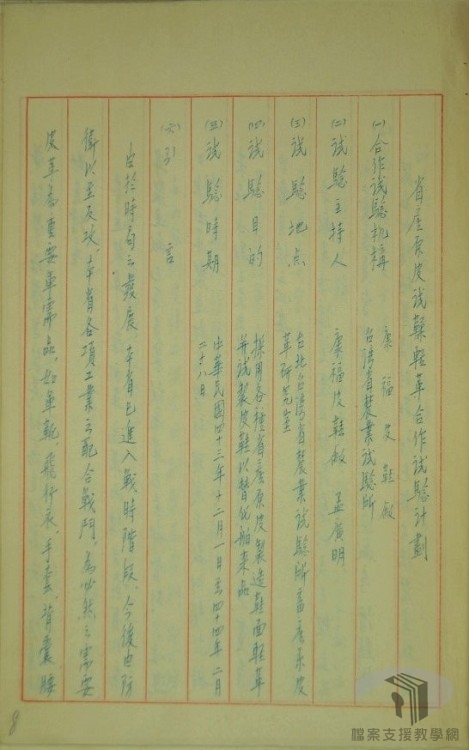 省產原皮試鞣輕革合作試驗計劃
(一)合作試驗机構 康福皮鞋廠
台灣省農業試驗所
(二)試驗主持人 康福皮鞋廠 孟廣明
(三)試驗地点 台北台灣省農業試驗所畜產系皮
革研究室
(四)試驗目的 採用各種省產原皮製造鞋面輕革
并試製皮鞋以替代舶來品
(五)試驗時期 中華民國四十三年十二月一日至四十四年二月
二十八日
(六)引言
由於時局之發展 本省已進入戰時階段、今後由防
衛以至反攻、本省各項工業之配合戰鬥、為必然之需要
皮革為重要軍需品、如軍靴、飛行衣、手套、背囊、腰
8
檔案支援教學網